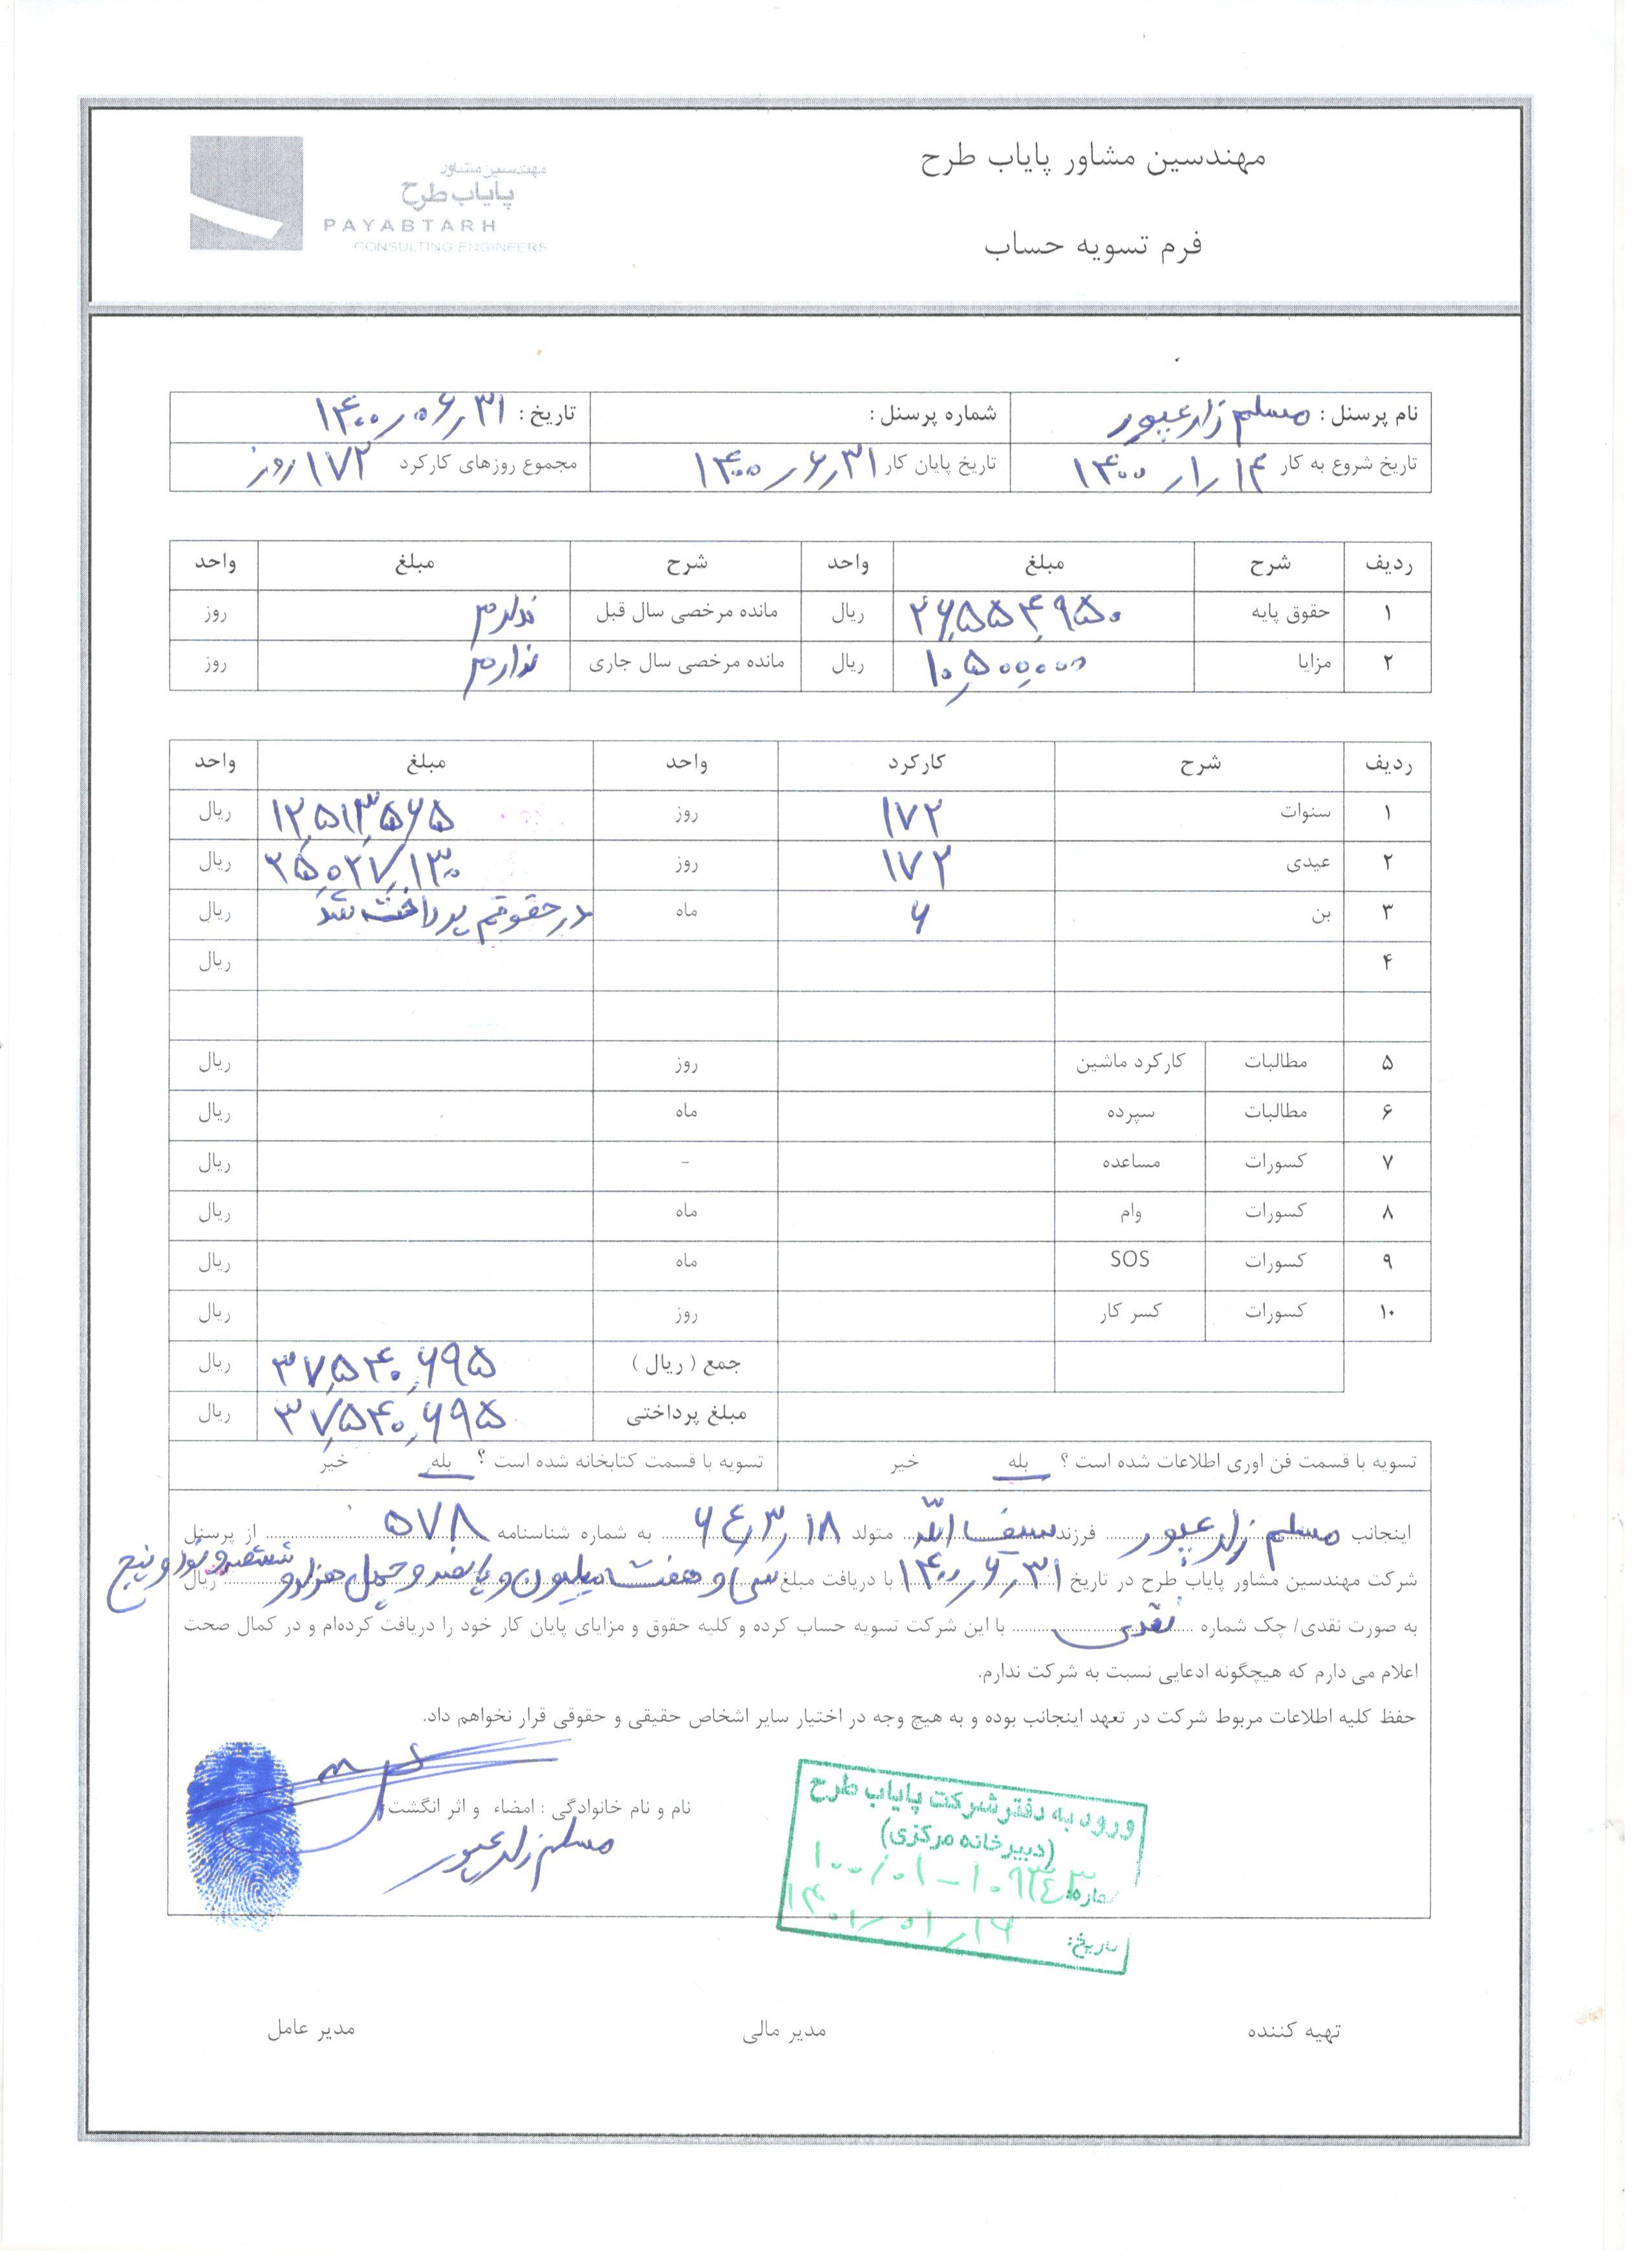 مهندسین مشاور پایاب طرح
مهندسین مشاور
پایاب طرح
PAYABTARH
CONSULTING ENGINEERS
فرم تسویه حساب
نام پرسنل : مسلم زارعپور شماره پرسنل : تاریخ : ۱۴۰۰/۰۶/۳۱
تاریخ شروع به کار ۱۴۰۰/۱/۱۴ تاریخ پایان کار ۱۴۰۰/۶/۳۱ مجموع روزهای کارکرد ۱۷۲ روز
ردیف شرح مبلغ واحد شرح مبلغ واحد
۱ حقوق پایه ۲۶,۵۵۴,۹۵۰ ریال مانده مرخصی سال قبل ندارم روز
۲ مزایا ۱۰,۵۰۰,۰۰۰ ریال مانده مرخصی سال جاری ندارم روز
ردیف شرح کارکرد واحد مبلغ واحد
۱ سنوات ۱۷۲ روز ۱۲,۵۱۳,۵۶۵ ریال
۲ عیدی ۱۷۲ روز ۲۵,۰۲۷,۱۳۰ ریال
۳ بن ۶ ماه در حقوقم پرداخت شد ریال
۴ ریال
۵ مطالبات کارکرد ماشین روز ریال
۶ مطالبات سپرده ماه ریال
۷ کسورات مساعده - ریال
۸ کسورات وام ماه ریال
۹ کسورات SOS ماه ریال
۱۰ کسورات کسر کار روز ریال
جمع ( ریال ) ۳۷,۵۴۰,۶۹۵ ریال
مبلغ پرداختی ۳۷,۵۴۰,۶۹۵ ریال
تسویه با قسمت فن اوری اطلاعات شده است ؟ بله خیر تسویه با قسمت کتابخانه شده است ؟ بله خیر
اینجانب مسلم زارعپور فرزند سیف الله متولد ۶۴/۳/۱۸ به شماره شناسنامه ۵۷۸ از پرسنل
شرکت مهندسین مشاور پایاب طرح در تاریخ ۱۴۰۰/۶/۳۱ با دریافت مبلغ سی و هفت میلیون و پانصد و چهل هزار و ششصد و نود و پنج ریال
به صورت نقدی/ چک شماره نقدی با این شرکت تسویه حساب کرده و کلیه حقوق و مزایای پایان کار خود را دریافت کرده‌ام و در کمال صحت
اعلام می دارم که هیچگونه ادعایی نسبت به شرکت ندارم.
حفظ کلیه اطلاعات مربوط شرکت در تعهد اینجانب بوده و به هیچ وجه در اختیار سایر اشخاص حقیقی و حقوقی قرار نخواهم داد.
نام و نام خانوادگی : امضاء و اثر انگشت
مسلم زارعپور
ورود به دفتر شرکت پایاب طرح
(دبیرخانه مرکزی)
شماره:
تاریخ: ۱۴۰۱/۰۱/۱۶
تهیه کننده مدیر مالی مدیر عامل